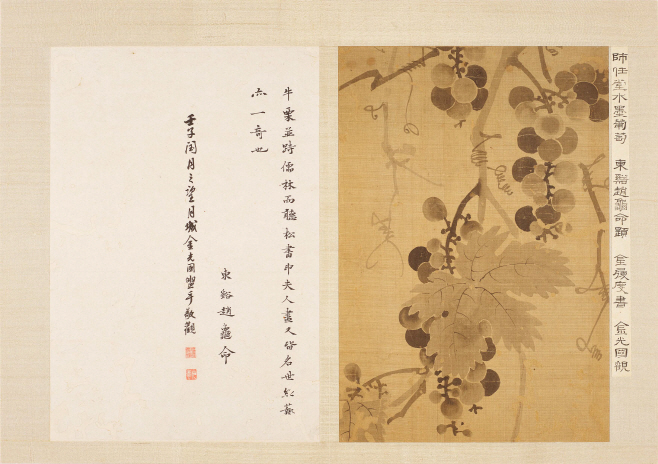 師任堂水墨葡萄 東谿趙龜命題 金履度書 金光國觀
牛栗並跱儒林而聽松書申夫人畫又皆名世
亦一奇也
東谿趙龜命
壬子閏月之望月城金光國盥手敬觀